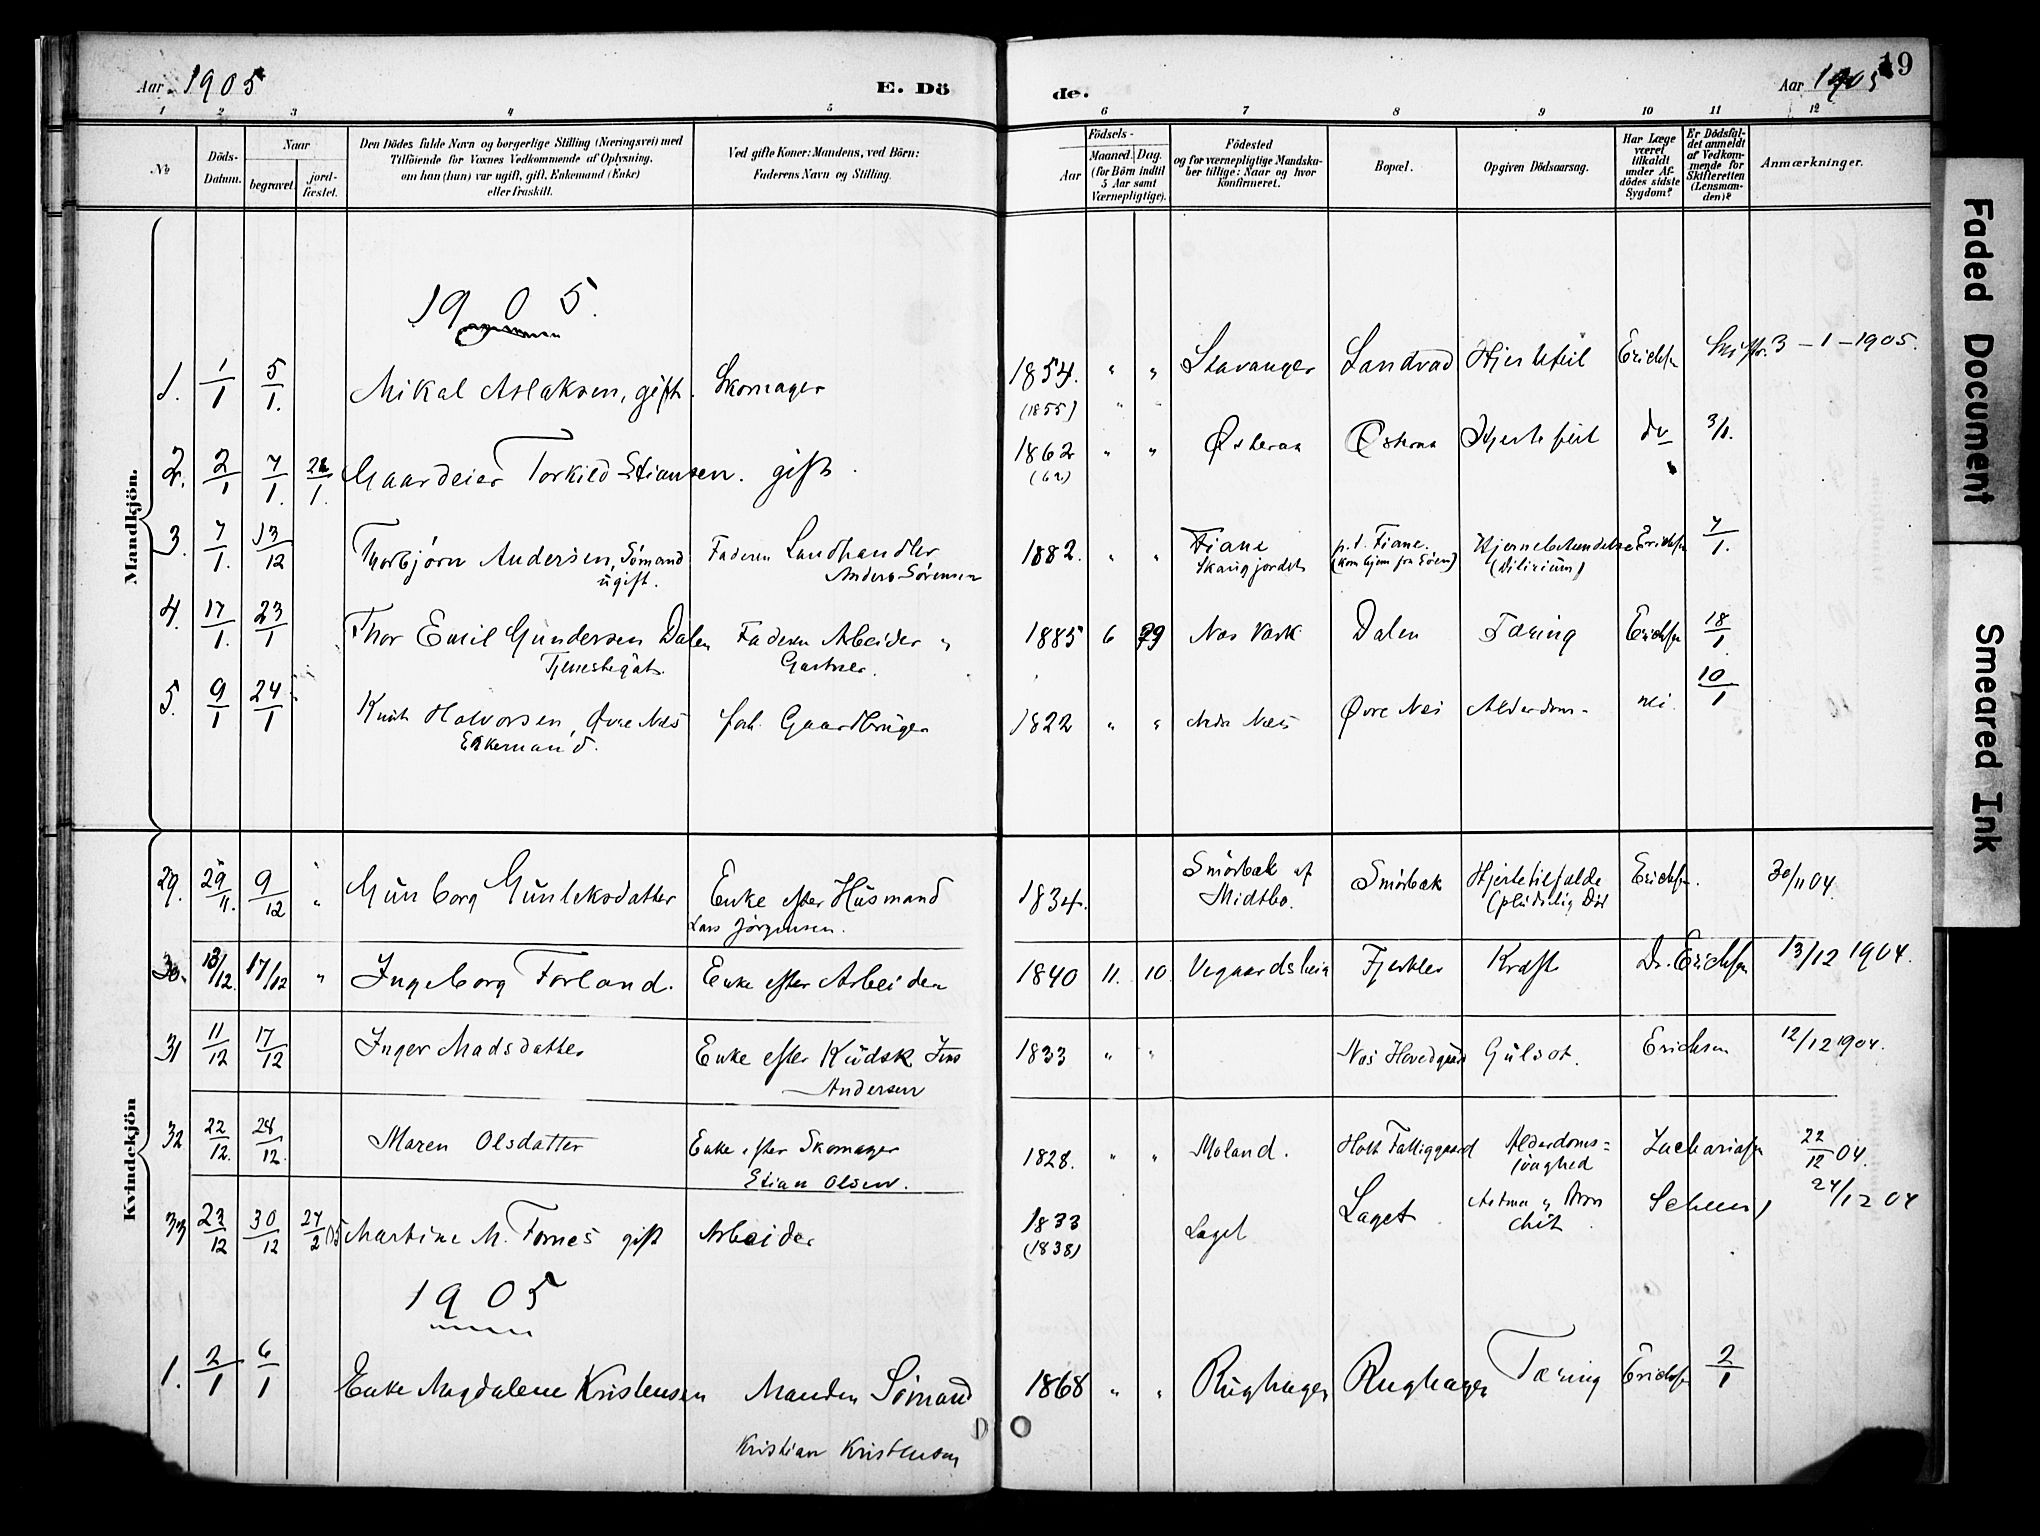 Aar 1905 E. Dö
de. Aar 1905 19
1 2 3 4 5 6 7 8 9 10 11 12
No
Döds-Datum.
Naar
begravet.
jord-fæstet.
Den Dödes fulde Navn og borgerlige Stilling (Næringsvei) med
Tilföiende for Voxnes Vedkommende af Oplysning,
om han (hun) var ugift, gift, Enkemand (Enke)
eller fraskilt.
Ved gifte Koner: Mandens, ved Börn:
Faderens Navn og Stilling.
Födsels-
Aar
Maaned. Dag.
(for Börn indtil
5 Aar samt
Værnepligtige).
Födested
og for værnepligtige Mandska-
ber tillige: Naar og hvor
konfirmeret.
Bopæl.
Opgiven Dödsaarsag.
Har Læge
været
tilkaldt
under Af-
dödes sidste
Sygdom?
Er Dödsfal-
det anmeldt
af Vedkom-
mende for
Skifteretten
(Lensman-
den)?
Anmærkninger.
Mandkjön.
1905.
1. 1/1 5/1. Mikal Aslaksen, gift. Skomager 1854. " " Stavanger Landvad Hjertefeil Erichsen Skiftr. 3-1-1905.
(1855)
2. 2/1 7/1. 1. Gaardeier Torkild Stiansen. gift. 1862 " " Østeraa Østeraa Hjertefeil do 3/1.
(62)
3. 7/1. 13/12 Thorbjørn Andersen, Sømand Faderen Landhandler 1882. " " Fiane p.t. Fiane. Hjernebetændelse Erichsen 7/1.
ugift. Anders Sørensen Skaugjordet (kom hjem fra Søen) (Dilirium)
4. 17/1. 23/1 Thor Emil Gundersen Dalen Faderen Arbeider " 1885 6 29 Næs Værk Dalen Tæring Erichsen 18/1
Tjenestegut. Gartner.
5. 9/1 24/1 Knut Halvorsen, Øvre Næs forh. Gaardbruger 1822 " " Nedre Næs Øvre Næs Alderdom- nei. 10/1
Enkemand.
Kvindekjön
29. 29/11. 9/12 " Gunborg Gunleksdatter Enke efter Husmand 1834. Smørbæk af Smörbæk Hjertetilfælde Erichsen. 30/11 04.
Lars Jörgensen. Midtbo. (pludselig Död
30. 13/12. 17/12 " Ingeborg Forland. Enke efter Arbeider 1840 11. 10. Vegaardsheia Kræft Dr. Erichsen 13/12 1904.
31 11/12 17/12 Inger Madsdatter Enke efter Kudsk Jens 1833 " " Næs Hovedgaard Gulsot. Erichsen 12/12 1904.
Andersen
32 22/12. 28/12. Maren Olsdatter Enke efter Skomager 1828. " " Moland. Holt Fattiggaard Alderdoms= Zachariasen 22/12 04.
Stian Olsen. svaghed
33 23/12 30/12 24/2 05 Martine M. Fornes gift Arbeider 1833 Laget Laget Astma " Bron Scheen 24/12 04
(1838) chit.
1905
1. 2/1 6/1 Enke Magdalene Kristensen Manden Sømand 1868 " " Rughagen Rughagen Tæring Erichsen 2/1
Kristian Kristensen
Faded Document
Smeared Ink